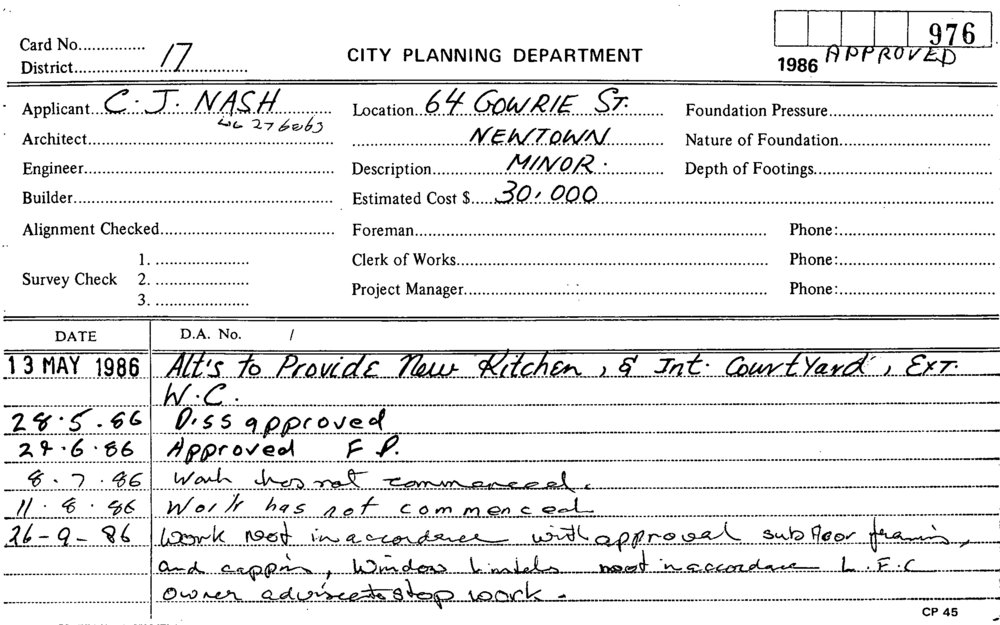 976
Card No...............
District............17............
CITY PLANNING DEPARTMENT
1986 APPROVED
Applicant C. J. NASH
Location 64 GOWRIE ST.
Foundation Pressure
Architect
NEWTOWN
Nature of Foundation
Engineer
Description MINOR.
Depth of Footings
Builder
Estimated Cost $ 30,000
Alignment Checked
Foreman
Phone:
1.
Clerk of Works
Phone:
Survey Check 2.
Project Manager
Phone:
3.
DATE D.A. No. /
13 MAY 1986 Alt's to Provide New Kitchen, & Int. CourtYard, Ext.
W.C.
28.5.86 Diss approved
Approved F P.
8.7.86 Work has not commenced.
11.8.86 Work has not commenced
26-9-86 Work not in accordance with approval subfloor framin,
and cappin, Window Lintels not in accordance L.F.C
owner advised to stop work.
CP 45